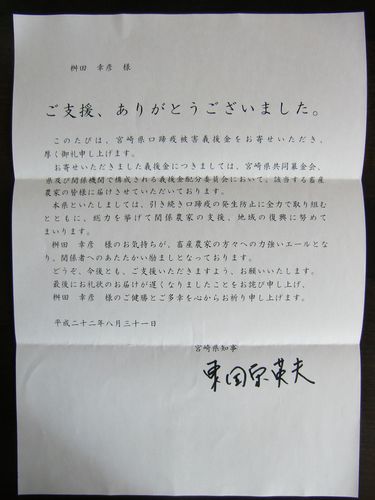 桝田 幸彦 様
ご支援、ありがとうございました。
このたびは、宮崎県口蹄疫被害義援金をお寄せいただき、
厚く御礼申し上げます。
お寄せいただきました義援金につきましては、宮崎県共同募金会、
県及び関係機関で構成される義援金配分委員会において、該当する畜産
農家の皆様に届けさせていただいております。
本県といたしましては、引き続き口蹄疫の発生防止に全力で取り組む
とともに、総力を挙げて関係農家の支援、地域の復興に努めて
まいります。
桝田 幸彦 様のお気持ちが、畜産農家の方々への力強いエールとな
り、関係者へのあたたかい励ましとなっております。
どうぞ、今後とも、ご支援いただきますよう、お願いいたします。
最後にお礼状のお届けが遅くなりましたことをお詫び申し上げ、
桝田 幸彦 様のご健勝とご多幸を心からお祈り申し上げます。
平成二十二年八月三十一日
宮崎県知事
東国原英夫